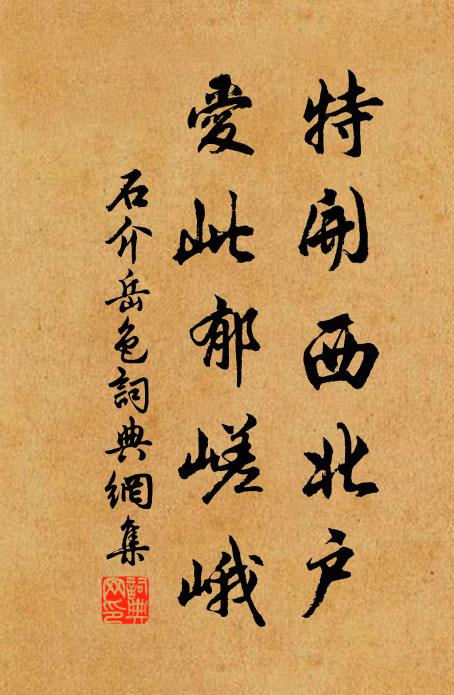 特開西北户
愛此郁嵯峨
石介岳色詞典網集
詞典
网印